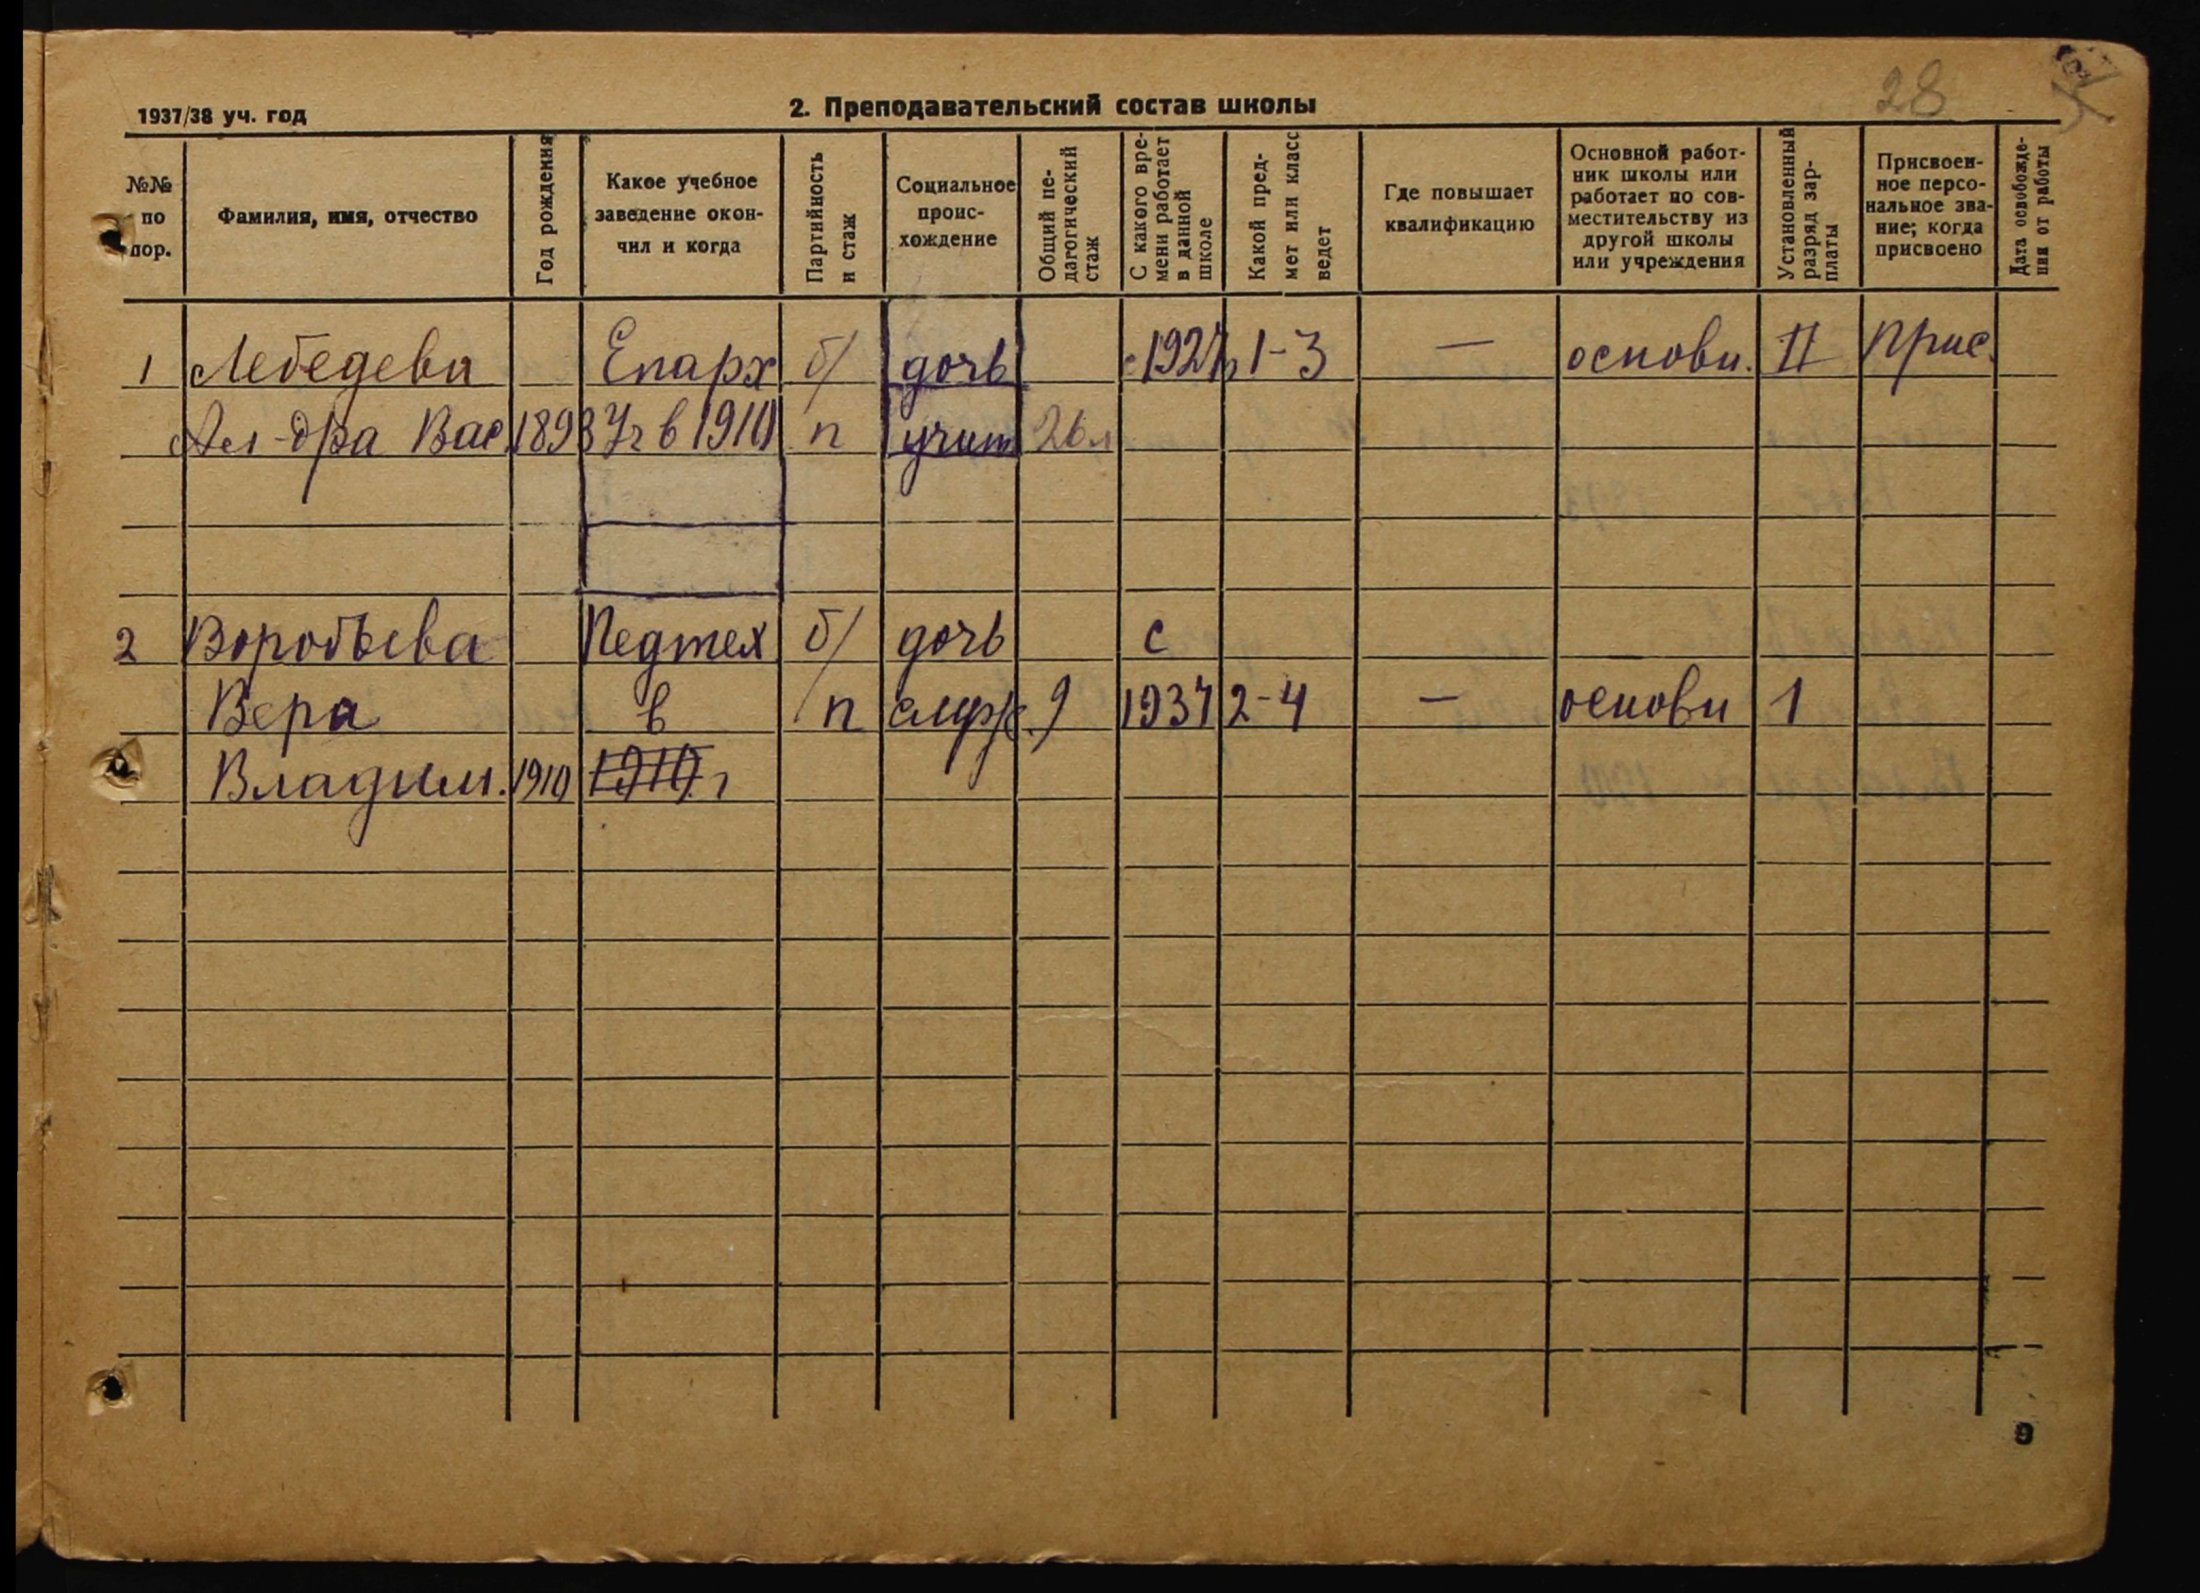 28
1937/38 уч. год
2. Преподавательский состав школы
№№ по пор.
Фамилия, имя, отчество
Год рождения
Какое учебное заведение окон-чил и когда
Партийность и стаж
Социальное проис-хождение
Общий пе-дагогический стаж
С какого вре-мени работает в данной школе
Какой пред-мет или класс ведет
Где повышает квалификацию
Основной работ-ник школы или работает по сов-местительству из другой школы или учреждения
Установленный разряд зар-платы
Присвоен-ное персо-нальное зва-ние; когда присвоено
Дата освобожде-ния от работы
1 Лебедева Епарх б/ дочь с 1927 1-3 — основн. II прис.
Ал-дра Вас. 1893 Уч в 1910 п учит 26 л
2 Воробьева Педтех б/ дочь с
Вера в /п служ. 9 1937 2-4 — основн 1
Владим. 1910 1910 г
9